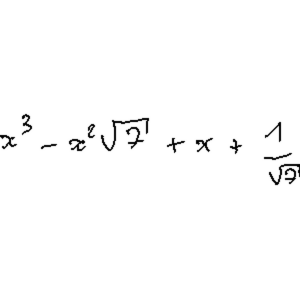 x³ − x²√7 + x + 1/√7